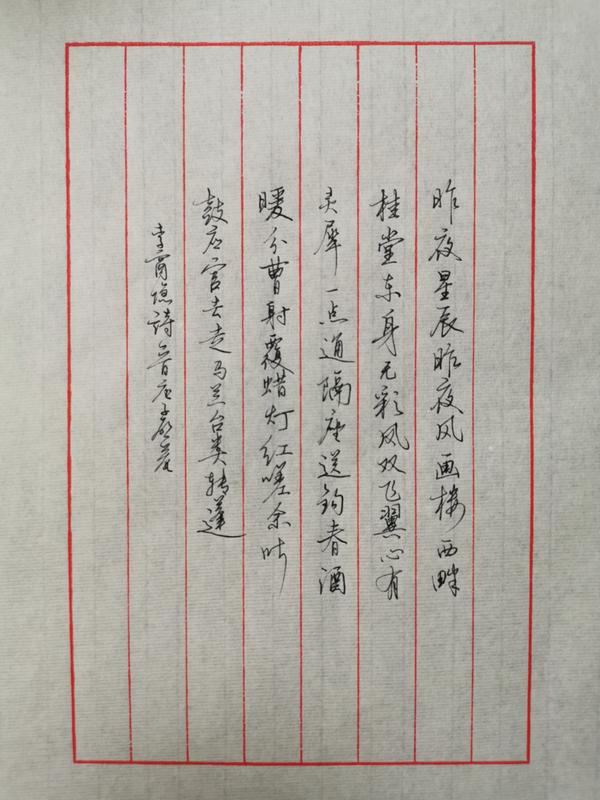 昨夜星辰昨夜风画楼西畔
桂堂东身无彩凤双飞翼心有
灵犀一点通隔座送钩春酒
暖分曹射覆蜡灯红嗟余听
鼓应官去走马兰台类转蓬
李商隐詩一首